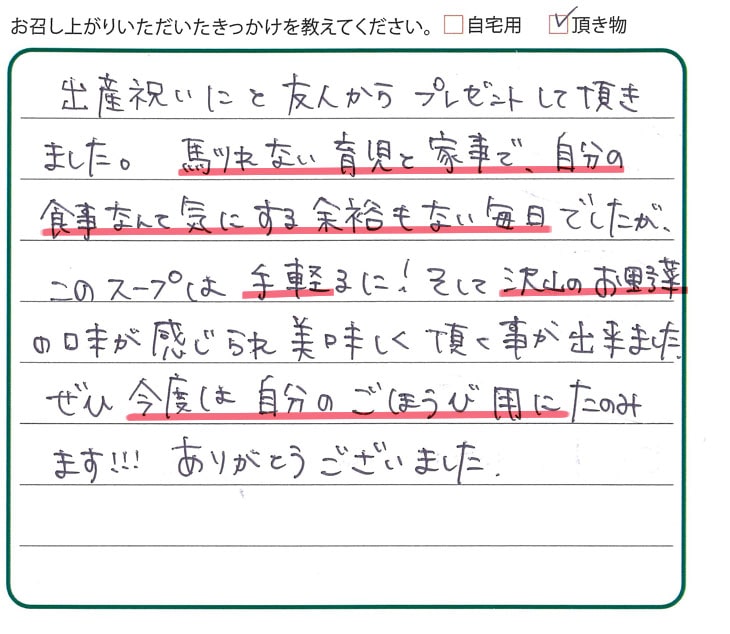 お召し上がりいただいたきっかけを教えてください。 □自宅用 ☑頂き物
出産祝いにと友人からプレゼントして頂き
ました。馴れない育児と家事で、自分の
食事なんて気にする余裕もない毎日でしたが、
このスープは手軽るに!そして沢山のお野菜
の味が感じられ美味しく頂く事が出来ました。
ぜひ今度は自分のごほうび用にたのみ
ます!!!ありがとうございました。